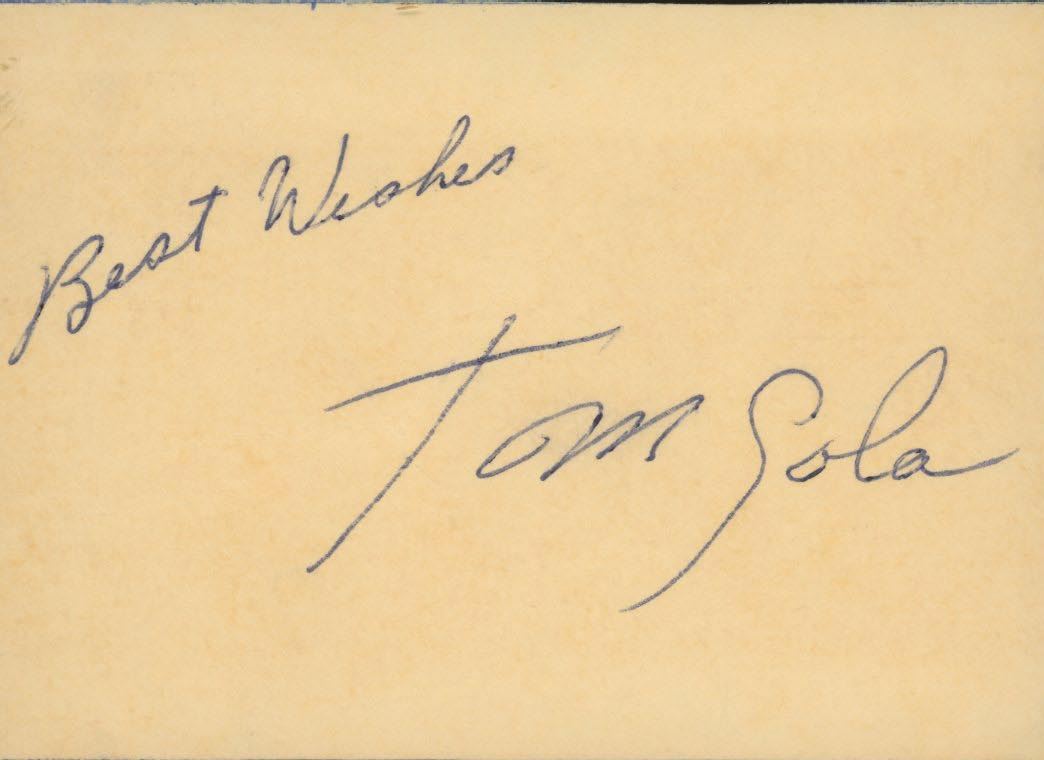 Best Wishes
Tom Gola